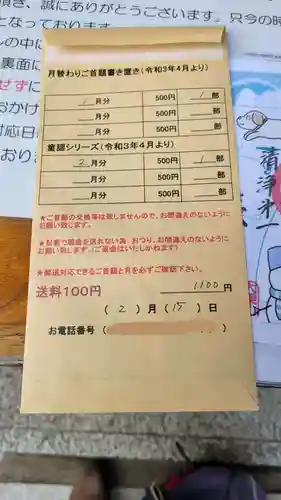 頂き、誠にありがとうございます。只今の時
となっております。
ルの中に
裏面に
せずに
おかけ
対応日
おり
月替わりご首題書き置き(令和3年4月より)
1月分 500円 1部
月分 500円 部
月分 500円 部
童謡シリーズ(令和3年4月より)
2月分 500円 1部
月分 500円 部
月分 500円 部
★ご首題の交換等は致しませんので、お間違えのないように
お願い致します。
★お釣で現金を送れない為、おつり、お間違えのないように
お願い致します。(ご返金はいたしかねます)
★郵送対応できるご首題と月を必ずご確認下さい。
送料100円 1100円
(2)月(15)日
お電話番号( )